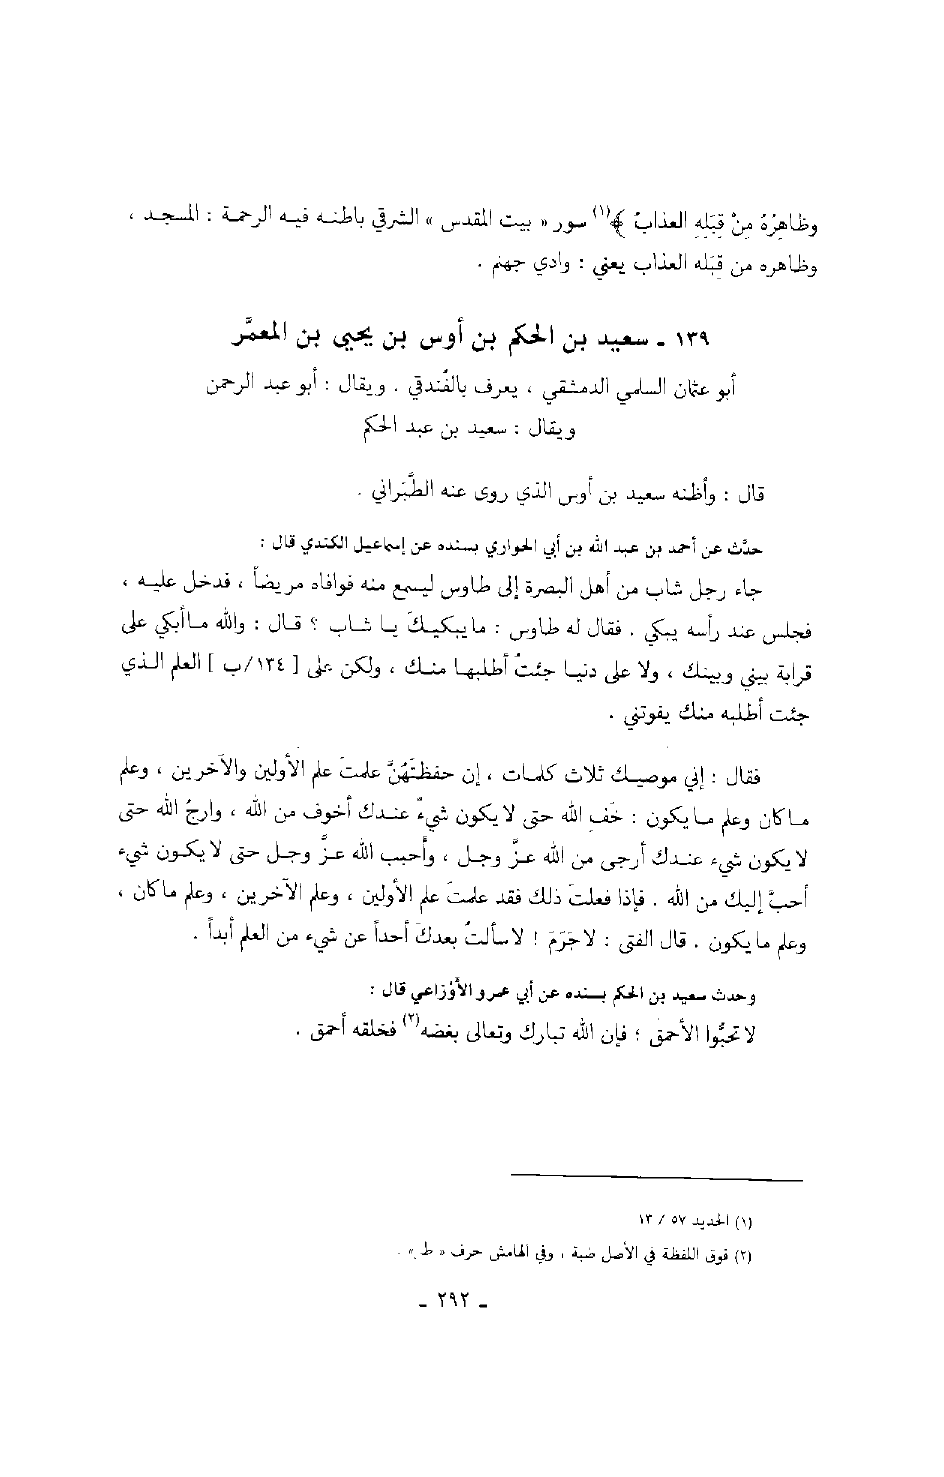 وظاهِرُهُ مِنْ قِبَلِهِ العذابُ ﴾(١) سور « بيت المقدس » الشرقي باطنه فيه الرحمة : المسجد ،
وظاهره من قِبَله العذاب يعني : وادي جهنم .
١٣٩ ـ سعيد بن الحكم بن أوس بن يحيى بن المعمَّر
أبو عثمان السلمي الدمشقي ، يعرف بالفُندقي . ويقال : أبو عبد الرحمن
ويقال : سعيد بن عبد الحكم
قال : وأظنه سعيد بن أوس الذي روى عنه الطَّبَراني .
حدَّث عن أحمد بن عبد الله بن أبي الحواري بسنده عن إسماعيل الكندي قال :
جاء رجل شاب من أهل البصرة إلى طاوس ليسمع منه فوافاه مريضاً ، فدخل عليه ،
فجلس عند رأسه يبكي . فقال له طاوس : ما يبكيكَ يا شاب ؟ قال : والله ما أبكي على
قرابة بيني وبينك ، ولا على دنيا جئتُ أطلبها منك ، ولكن على [ ١٣٤/ب ] العلم الذي
جئت أطلبه منك يفوتني .
فقال : إني موصيك ثلاث كلمات ، إن حفظتَهُنَّ علمتَ علم الأولين والآخرين ، وعلم
ما كان وعلم ما يكون : خَفِ الله حتى لا يكون شيءٌ عندك أخوف من الله ، وارجُ الله حتى
لا يكون شيء عندك أرجى من الله عزَّ وجل ، وأحبب الله عزَّ وجل حتى لا يكون شيء
أحبَّ إليك من الله . فإذا فعلتَ ذلك فقد علمتَ علم الأولين ، وعلم الآخرين ، وعلم ما كان ،
وعلم ما يكون . قال الفتى : لا جَرَمَ ! لا سألتُ بعدكَ أحداً عن شيء من العلم أبداً .
وحدث سعيد بن الحكم بسنده عن أبي عمرو الأوْزاعي قال :
لا تحبُّوا الأحمق ؛ فإن الله تبارك وتعالى بغضه(٢) فخلقه أحمق .
(١) الحديد ٥٧ / ١٣
(٢) فوق اللفظة في الأصل ضبة ، وفي الهامش حرف « ط » .
ـ ٢٩٢ ـ